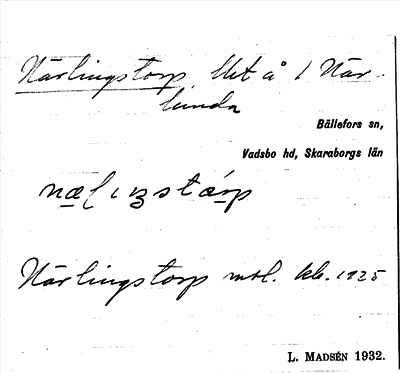 Närlingstorp Utt å 1 När-
lunda
Bällefors sn,
Vadsbo hd, Skaraborgs län
Närlingstorp mtl. kb. 1925
L. MADSÉN 1932.